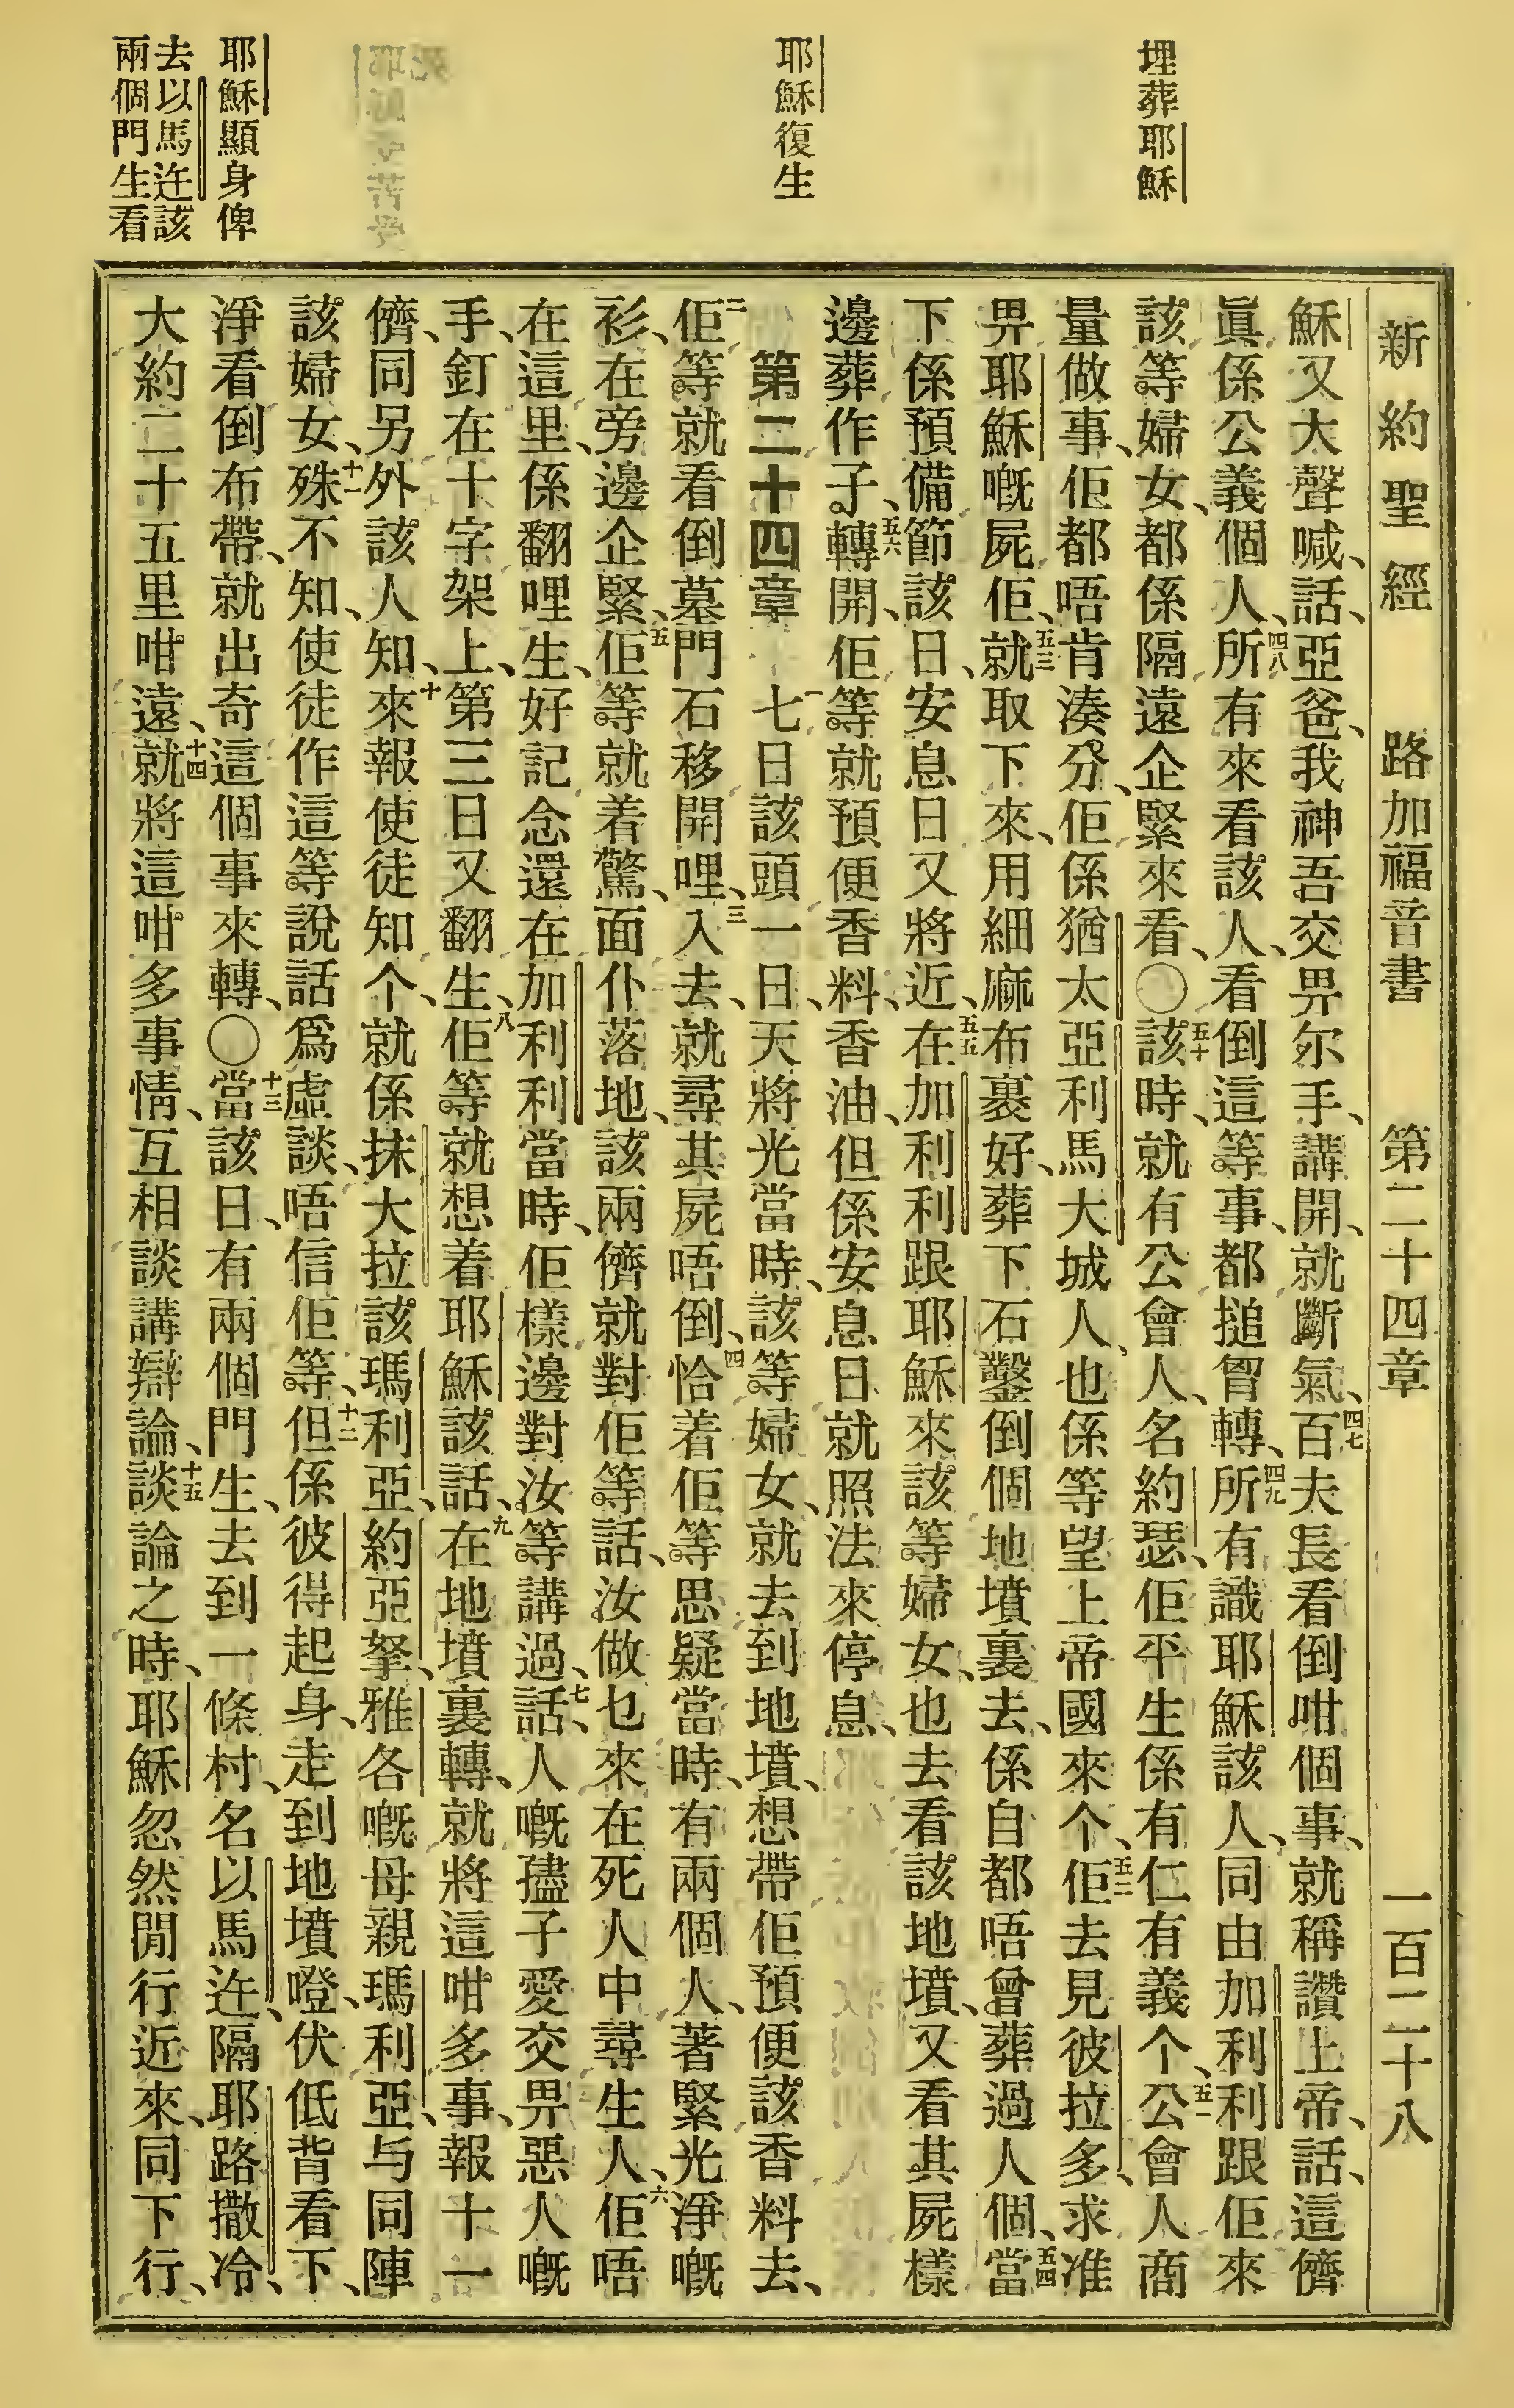 埋葬耶穌
耶穌復生
耶穌顯身俾
去以馬迕該
兩個門生看
新約聖經 路加福音書 第二十四章 一百二十八
穌又大聲喊、話、亞爸、我神吾交畀尔手、講開、就斷氣、四七百夫長看倒咁個事、就稱讚上帝、話、這儕
眞係公義個人、四八所有來看該人、看倒這等事、都搥胷轉、四九所有識耶穌該人、同由加利利跟佢來
該等婦女、都係隔遠企緊來看、〇五十該時、就有公會人、名約瑟、佢平生係有仁有義个、五一公會人商
量做事、佢都唔肯湊分、佢係猶太亞利馬大城人、也係等望上帝國來个、五二佢去見彼拉多、求准
畀耶穌嘅屍佢、五三就取下來、用細麻布裹好、葬下石鑿倒個地墳裏去、係自都唔曾葬過人個、五四當
下係預備節該日、安息日又將近、五五在加利利跟耶穌來該等婦女、也去看該地墳、又看其屍樣
邊葬作子、五六轉開、佢等就預便香料、香油、但係安息日就照法來停息、
第二十四章 一七日該頭一日、天將光當時、該等婦女、就去到地墳、想帶佢預便該香料去、
二佢等就看倒墓門石移開哩、三入去、就尋其屍唔倒、四恰着佢等思疑當時、有兩個人、著緊光淨嘅
衫、在旁邊企緊、五佢等就着驚、面仆落地、該兩儕就對佢等話、汝做乜來在死人中尋生人、六佢唔
在這里、係翻哩生、好記念還在加利利當時、佢樣邊對汝等講過、七話、人嘅孻子愛交畀惡人嘅
手、釘在十字架上、第三日又翻生、八佢等就想着耶穌該話、九在地墳裏轉、就將這咁多事、報十一
儕、同另外該人知、十來報使徒知个、就係抹大拉該瑪利亞、約亞拏、雅各嘅母親瑪利亞、与同陣
該婦女、十一殊不知、使徒作這等說話爲虛談、唔信佢等、十二但係彼得起身、走到地墳嶝、伏低背看下、
淨看倒布帶、就出奇這個事來轉、〇十三當該日、有兩個門生、去到一條村、名以馬迕、隔耶路撒冷、
大約二十五里咁遠、十四就將這咁多事情、互相談講辯論、十五談論之時、耶穌忽然閒行近來、同下行、